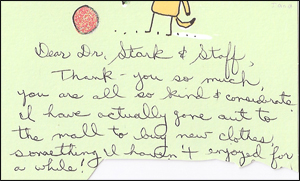 Dear Dr. Stark & Staff,
Thank-you so much,
you are all so kind & considerate
I have actually gone out to
the mall to buy new clothes,
something I haven't enjoyed for
a while!